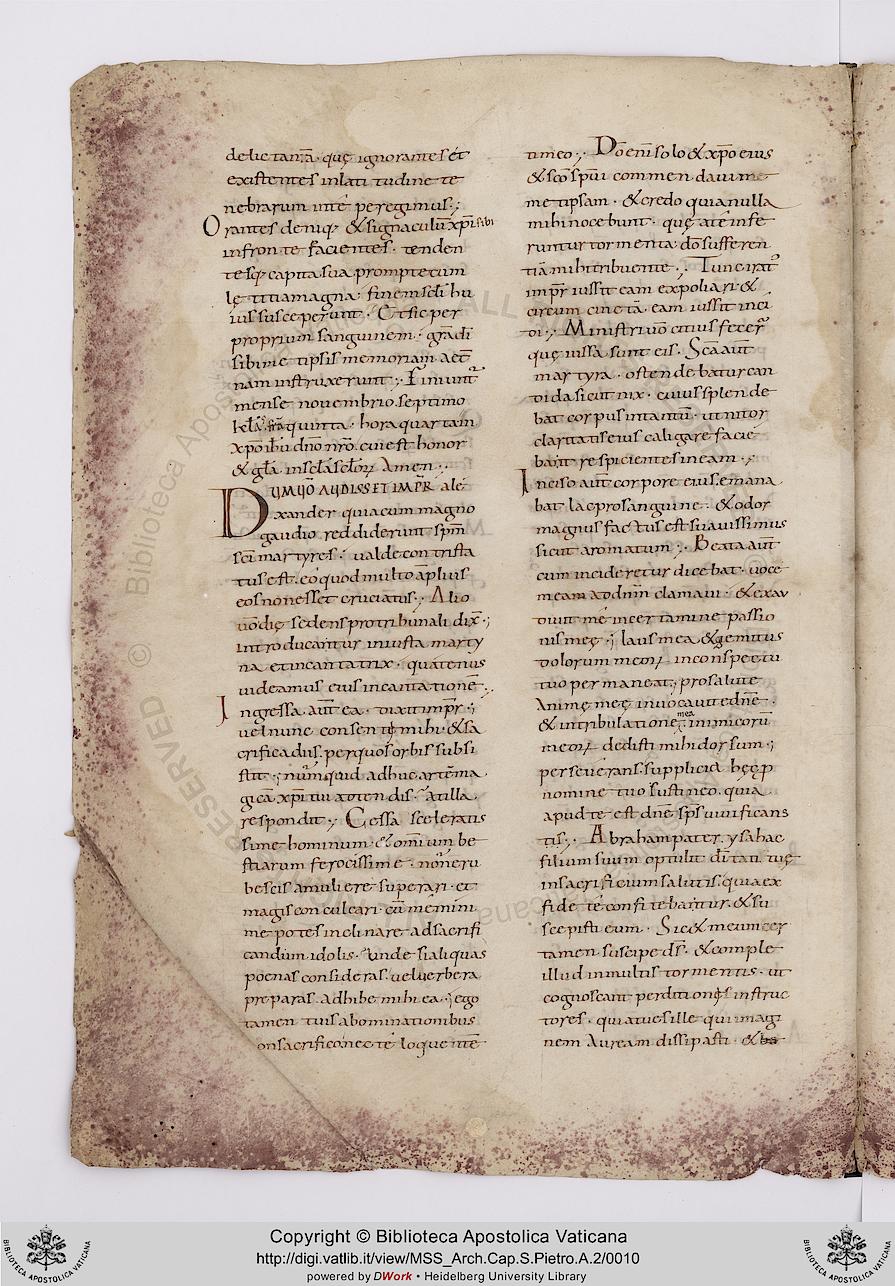 delictanr̄a. quę ignorantes et
existentes inlatitudine te
nebrarum inte peregimus;
Orantes deniq; & signaculū xp̄i sibi
infronte facientes. tenden
tesq; capita sua prompte cum
lętitia magna. finem sc̄i hu
ius susceperunt. Et sic per
proprium sanguinem. gradi
sibimetipsis memoriam aet̄
nam instruxerunt; Finiunt̄
mense novembrio. septimo
kł. quinta. hora quartam
xp̄o ih̄u dn̄o nr̄o. cui est honor
& gła. insc̄la sc̄lorꝝ Amen.
DUM UŌ AUDISSET IMPR̄ ale
xander quia cum magno
gaudio reddiderunt sp̄m
sc̄i martyres. valde contrista
tus est. eo quod multo āplius
eos non esset cruciatus; Alio
uō die sedens pro tribunali dix̄.
introducantur iniusta marty
na et incantatrix. quatenus
videamus eius incantationē;
Ingressa aūt ea. dixit impr̄;
vel nunc consenti mihi. & sa
crifica diis. per quos orbis subsi
stit; nūnquid adhuc artē ma
gicā xp̄i tui ostendis. at illa
respondit; Cessa sceleratis
sime hominum. & omnium be
stiarum ferocissime. non eru
bescis a muliere superari. et
magis conculcari. cū memini
me potes inclinare ad sacrifi
candum idolis. Unde si aliquas
poenas consideras. vel verbera
preparas. adhibe mihi ea. ego
tamen tuis abominationibus
non sacrifico. nec te loquentē
timeo; Dō enī solo & xp̄o eius
& sc̄o sp̄ui commendavi me
metipsam. & credo quia nulla
mihi nocebunt. quę a te infe
runtur tormenta. dō sufferen
tiā mihi tribuente; Tunc irat̄
impr̄ iussit eam expoliari. &
circum cincta. eam iussit inci
di; Ministri uō citius fecer̄
quę iussa sunt eis. Sc̄a aūt
martyra. ostendebatur can
dida sicut nix. cuius splende
bat corpus intantū. ut nitor
claritatis eius caligare facie
bant respicientes in eam;
Inciso aūt corpore eius. emana
bat lac pro sanguine. & odor
magnus factus est suavissimus
sicut aromatum; Beata aūt
cum incideretur dicebat. voce
mea ad dn̄m clamavi. & exau
divit me in certamine passio
nis meę; laus mea. & gemitus
dolorum meorꝝ in conspectu
tuo permaneat; pro salute
Animę meę invocavi te dn̄e.
& in tribulatione mea inimicorū
meorꝝ dedisti mihi dorsum;
perseverans supplicia hęc p
nomine tuo sustineo. quia
apud te est dn̄e sp̄s vivificans
tis; Abraham pater. ysahac
filium suum optulit dītati tuę
in sacrificium salutis. quia ex
fide te confitebantur. & su
scepisti eum. Sic & meum cer
tamen suscipe d̄s. & comple
illud in multis tormentis. ut
cognoscant perditiones instruc
tores. quia tu es ille qui imagi
nem Auream dissipasti. &
© Biblioteca Apostolica Vaticana
ALL RIGHTS RESERVED
Copyright © Biblioteca Apostolica Vaticana
http://digi.vatlib.it/view/MSS_Arch.Cap.S.Pietro.A.2/0010
powered by DWork • Heidelberg University Library
BIBLIOTECA APOSTOLICA VATICANA
BIBLIOTECA APOSTOLICA VATICANA